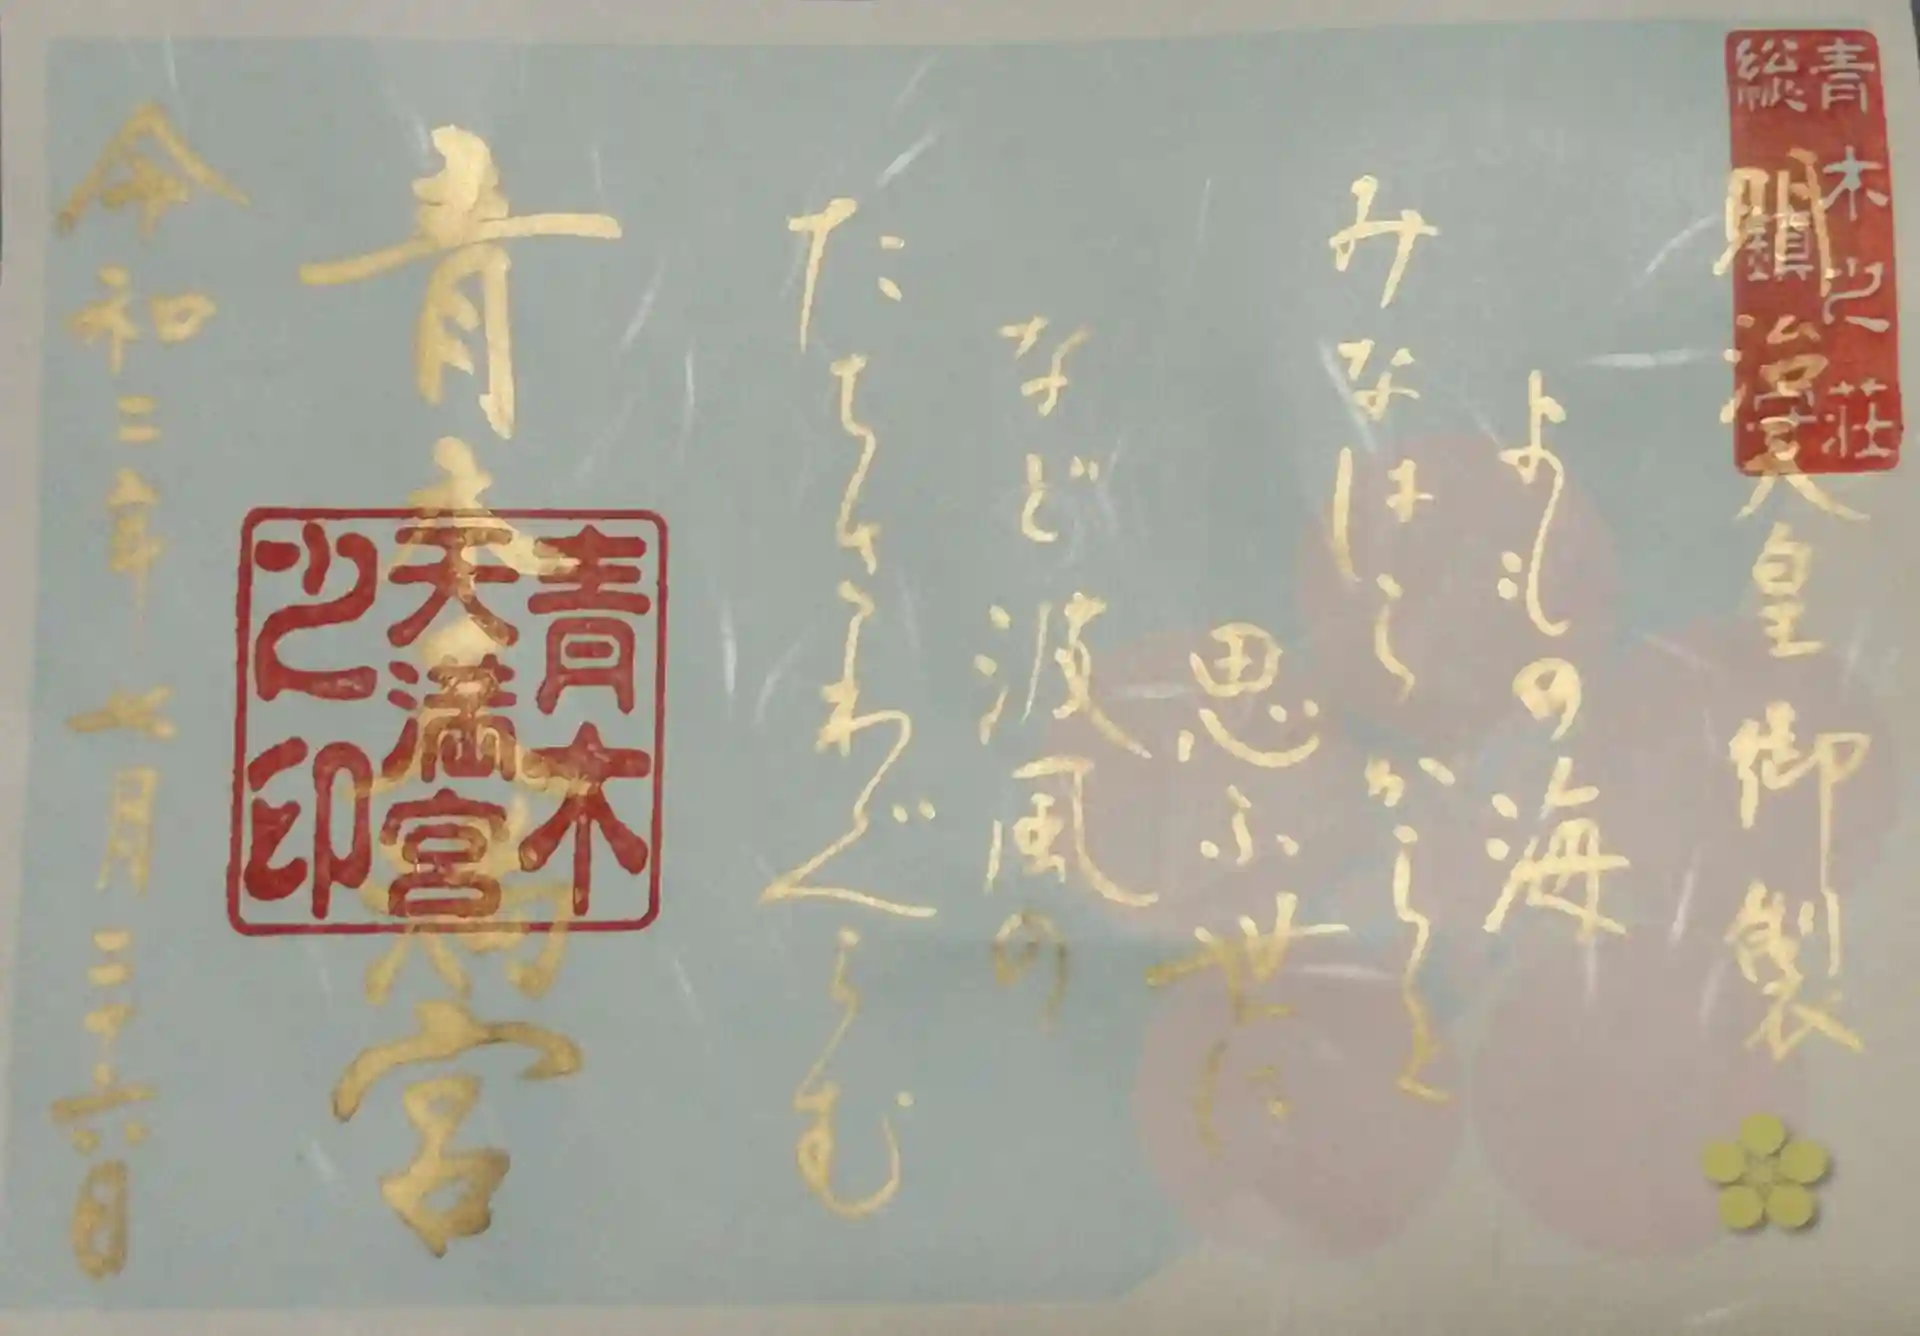 青木之荘
総鎮守
明治天皇御製
よもの海
みなはらからと
思ふ世は
など波風の
たちさわぐらむ
青木天満宮
青木
天満宮
之印
令和二年七月二十六日